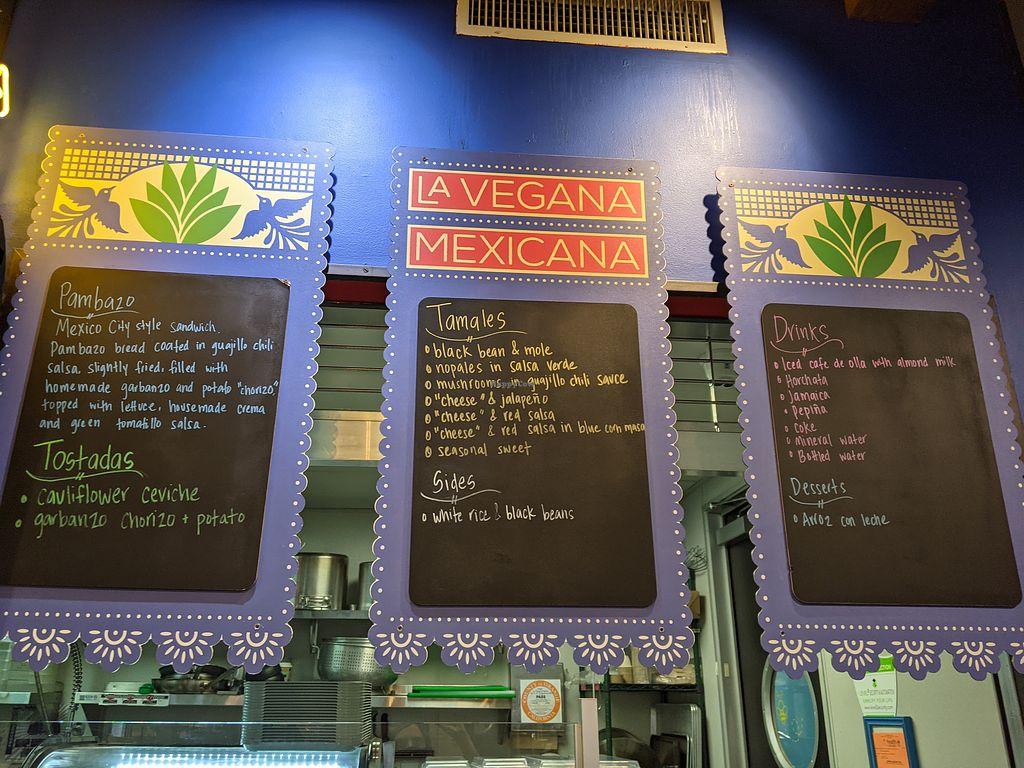 Pambazo
Mexico City style sandwich.
Pambazo bread coated in guajillo chili
salsa, slightly fried, filled with
homemade garbanzo and potato "chorizo,"
topped with lettuce, housemade crema
and green tomatillo salsa.
Tostadas
cauliflower ceviche
garbanzo chorizo + potato
LA VEGANA
MEXICANA
Tamales
black bean & mole
nopales in salsa verde
mushrooms in guajillo chili sauce
"cheese" & jalapeño
"cheese" & red salsa
"cheese" & red salsa in blue corn masa
seasonal sweet
Sides
white rice & black beans
Drinks
Iced cafe de olla with almond milk
Horchata
Jamaica
Pepiña
Coke
Mineral water
Bottled water
Desserts
Arroz con leche
PASS